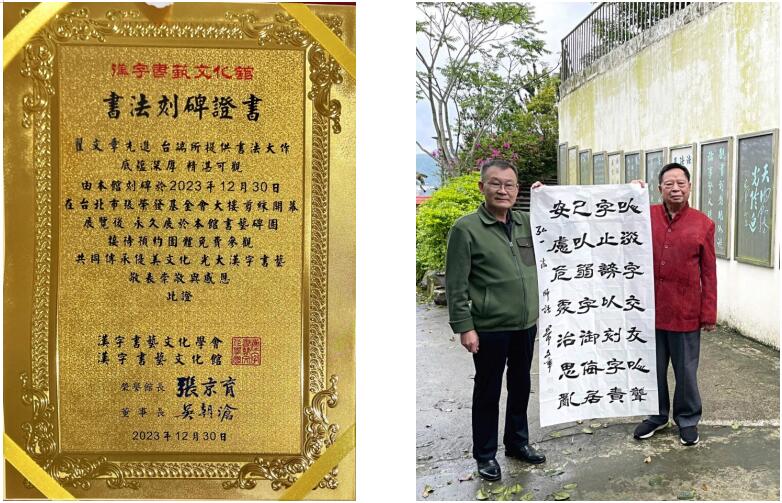 漢字書藝文化館
書法刻碑證書
瞿文章先進 台端所提供書法大作
底蘊深厚 精湛可觀
由本館刻碑於2023年12月30日
在台北市張榮發基金會大樓剪綵開幕
展覽後 永久展於本館書藝碑園
接待預約團館免費參觀
共同傳承優美文化 光大漢字書藝
敬表崇敬與感恩
此證
漢字書藝文化學會
漢字書藝文化館
榮譽館長 張京育
董事長 吳朝滄
2023年12月30日
以淡字交友以聾
字止謗以刻字責
己以弱字御侮居
安慮危處治思亂
弘一法師語 瞿文章